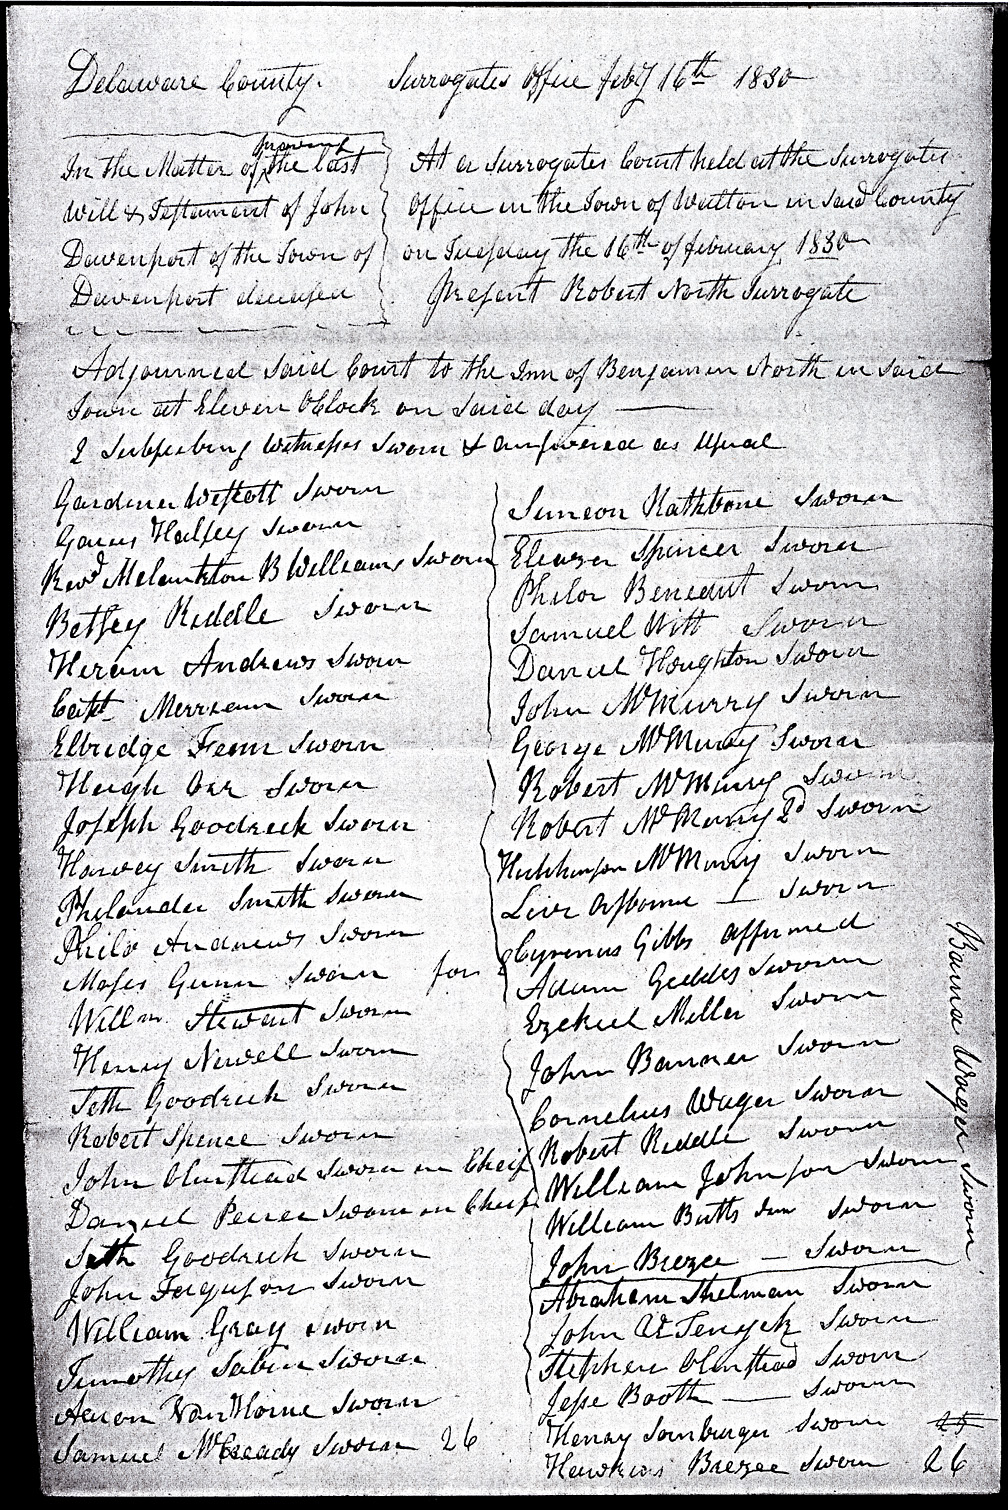 Delaware County. Surrogates Office feby 16th 1830
In the Matter of proving the last
Will & Testament of John
Davenport of the Town of
Davenport deceased
At a Surrogates Court held at the Surrogates
Office in the Town of Walton in said County
on Tuesday the 16th of february 1830
Present Robert North Surrogate
Adjourned said Court to the Inn of Benjamin North in said
Town at Eleven OClock on said day
2 Subscribing witnesses Sworn & answered as Usual
Gardiner Westcott Sworn
Halsey Sworn
Revd Melankton B Williams Sworn
Betsey Riddle Sworn
Hiram Andrews Sworn
Capt Merriam Sworn
Elbridge Fenn Sworn
Hugh Orr Sworn
Joseph Goodrich Sworn
Harvey Smith Sworn
Philander Smith Sworn
Philo Andrews Sworn
Moses Gunn Sworn for
Willm Stewart Sworn
Henry Newell Sworn
Seth Goodrich Sworn
Robert Spence Sworn
John Olmsthead Sworn in Cheif
Daniel Peirce Sworn in Cheif
Seth Goodrich Sworn
John Ferguson Sworn
William Gray Sworn
Timothy Sabin Sworn
Aaron VanHorne Sworn
Samuel McCready Sworn 26
Simeon Rathbone Sworn
Eleazer Spencer Sworn
Philor Benedict Sworn
Samuel Witt Sworn
Daniel Houghton Sworn
John McMurry Sworn
George McMurry Sworn
Robert McMurry Sworn
Robert McMurry 2d Sworn
Hutchinson McMurry Sworn
Levi Osborne Sworn
Cyrenus Gibbs affirmed
Adam Geddes Sworn
Ezekiel Miller Sworn
John Banner Sworn
Cornelius Wager Sworn
Robert Riddle Sworn
William Johnson Sworn
William Butts Jun Sworn
John Brezee Sworn
Abraham Shelman Sworn
John Sworn
Stephen Olmsthead Sworn
Jesse Booth Sworn
Henry Sornburger Sworn 25
Hawkins Brezee Sworn 26
Barna Wager Sworn